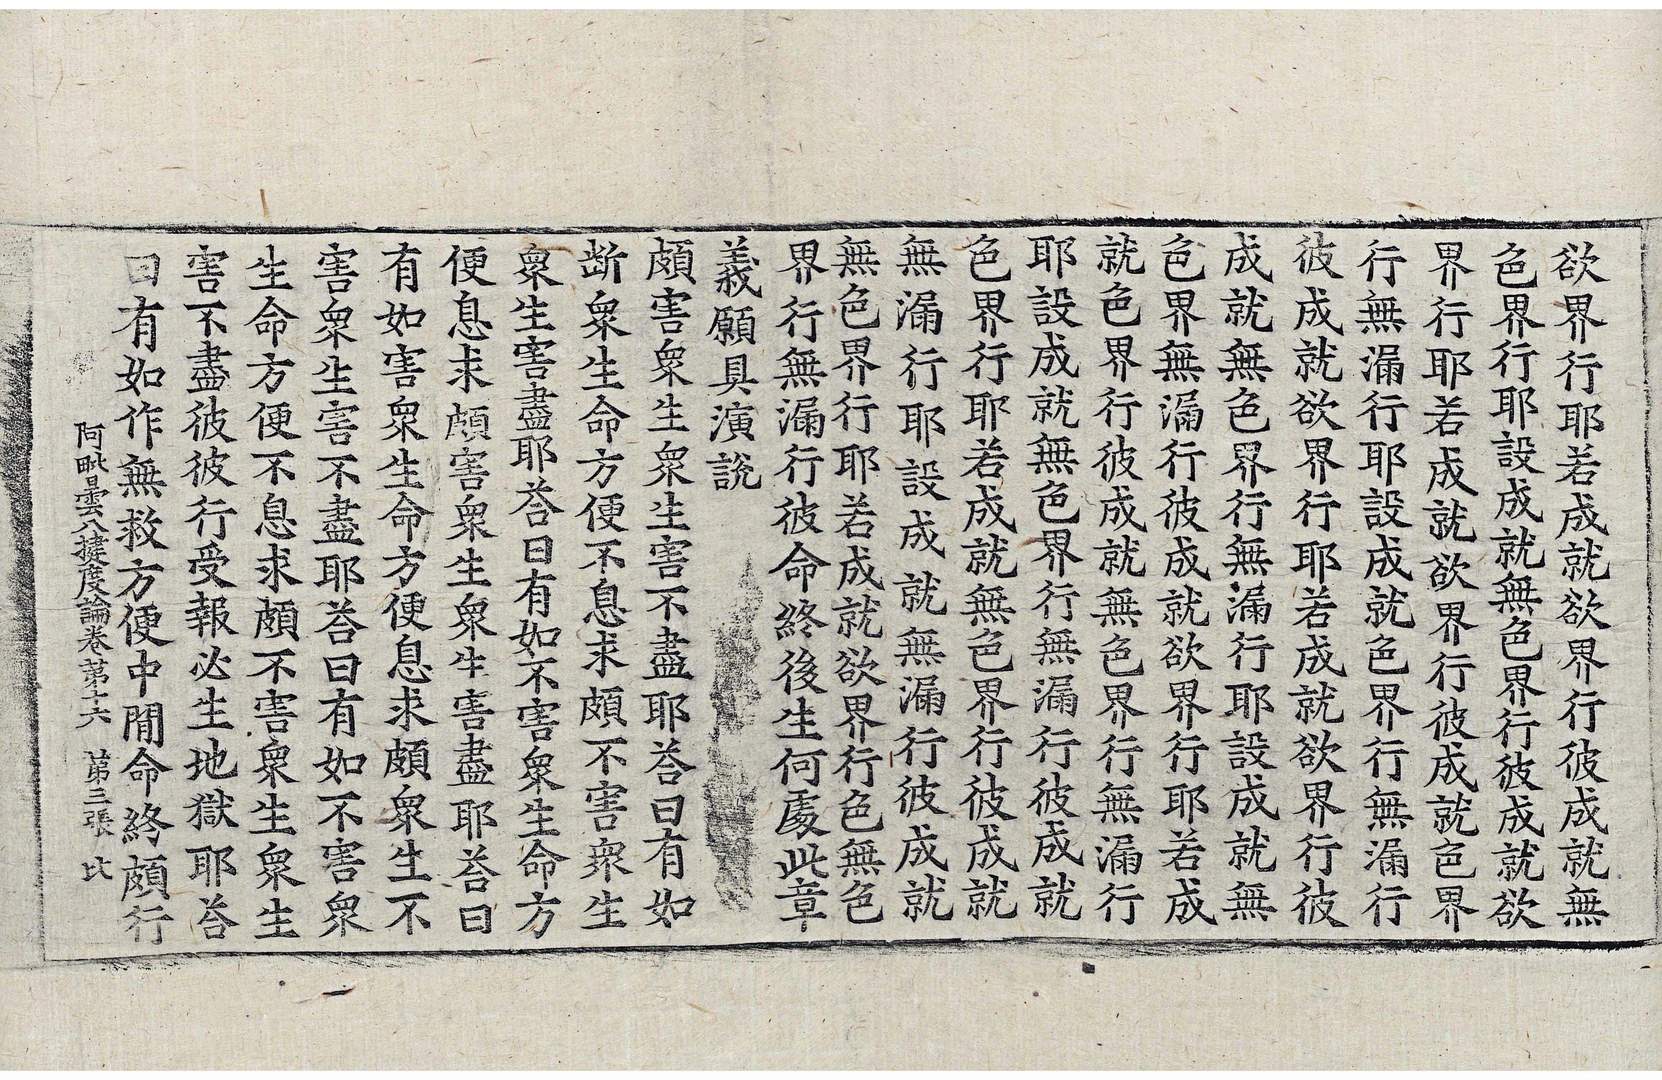 欲界行耶若成就欲界行彼成就無
色界行耶設成就無色界行彼成就欲
界行耶若成就欲界行彼成就色界
行無漏行耶設成就色界行無漏行
彼成就欲界行耶若成就欲界行彼
成就無色界行無漏行耶設成就無
色界無漏行彼成就欲界行耶若成
就色界行彼成就無色界行無漏行
耶設成就無色界行無漏行彼成就
色界行耶若成就無色界行彼成就
無漏行耶設成就無漏行彼成就
無色界行耶若成就欲界行色無色
界行無漏行彼命終後生何處此章
義願具演說
頗害衆生衆生害不盡耶荅曰有如
斷衆生命方便不息求頗不害衆生
衆生害盡耶荅曰有如不害衆生命方
便息求頗害衆生衆生害盡耶荅曰
有如害衆生命方便息求頗衆生不
害衆生害不盡耶荅曰有如不害衆
生命方便不息求頗不害衆生衆生
害不盡彼彼行受報必生地獄耶荅
曰有如作無救方便中間命終頗行
阿毗曇八揵度論卷第十六 第三張 比